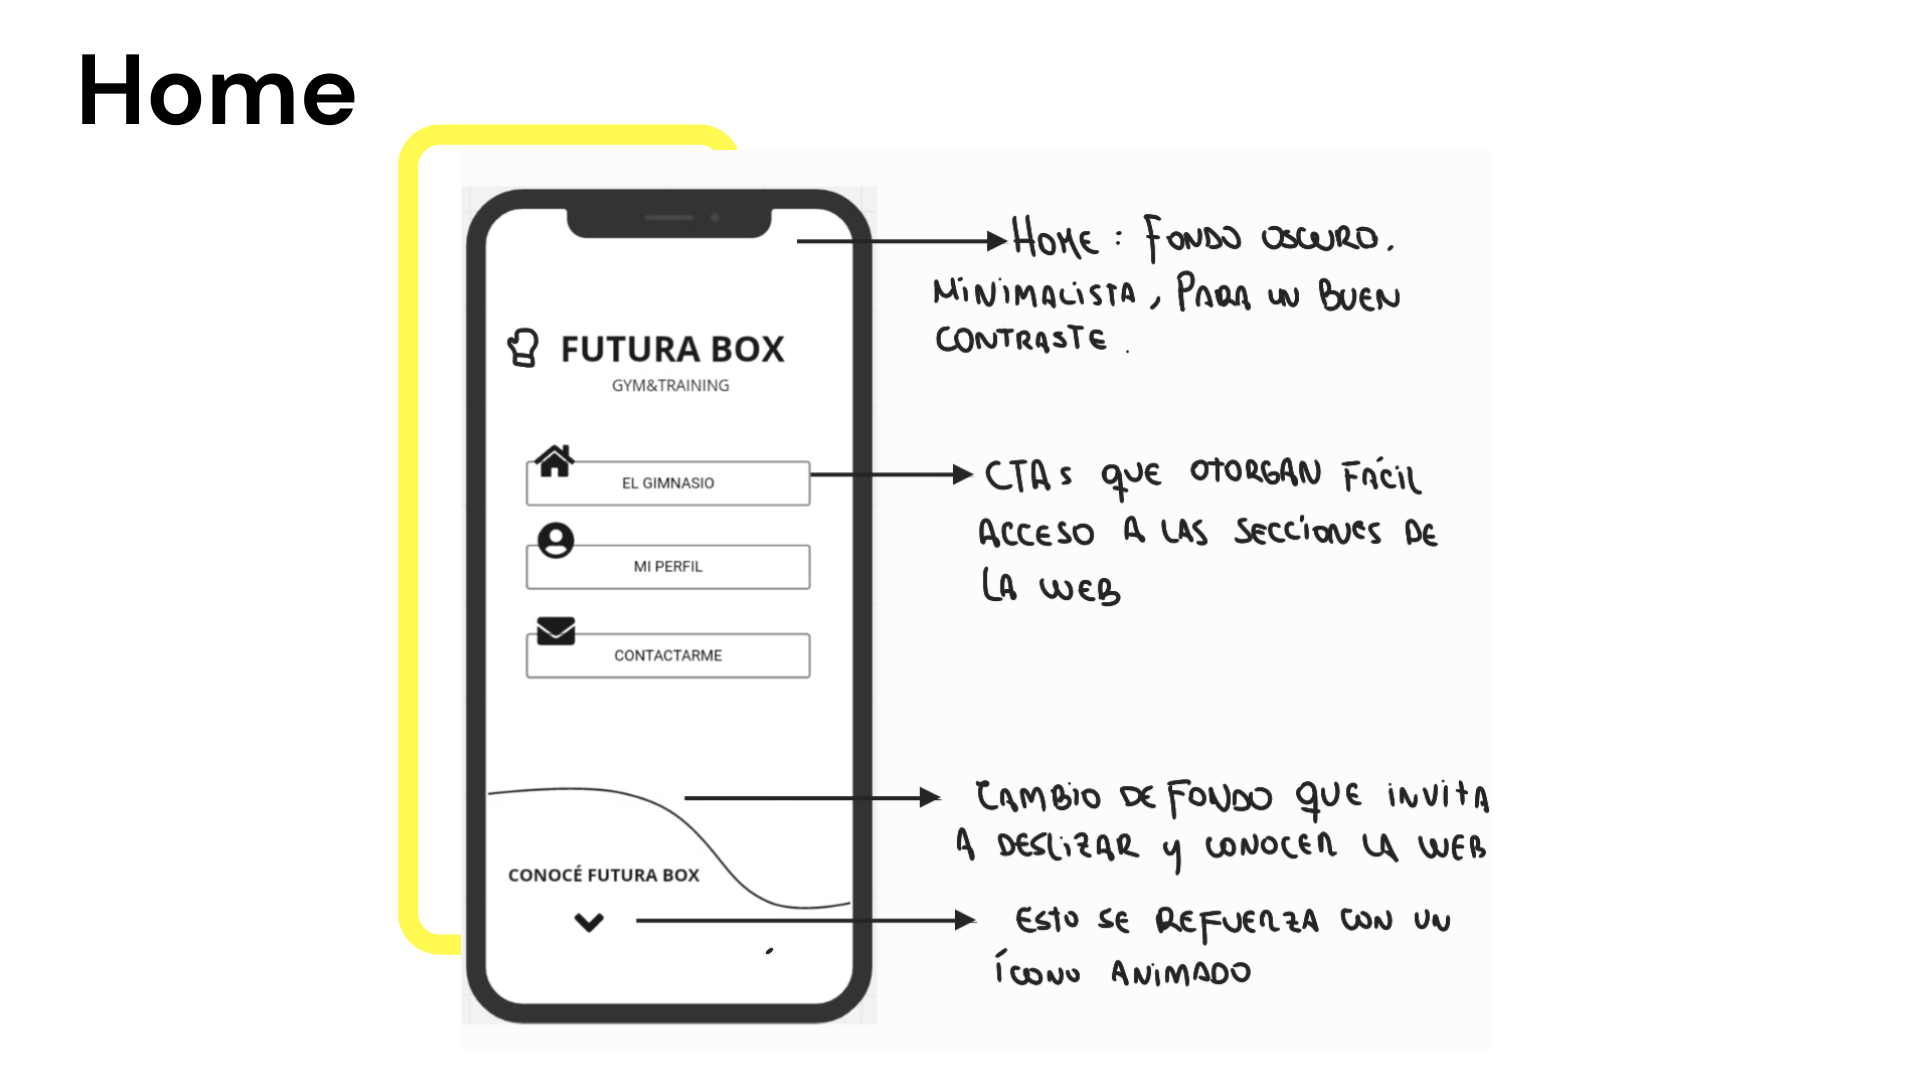 Home
FUTURA BOX
GYM&TRAINING
EL GIMNASIO
MI PERFIL
CONTACTARME
CONOCÉ FUTURA BOX
HOME : FONDO OSCURO.
MINIMALISTA, PARA UN BUEN
CONTRASTE.
CTAs QUE OTORGAN FÁCIL
ACCESO A LAS SECCIONES DE
LA WEB
CAMBIO DE FONDO QUE INVITA
A DESLIZAR Y CONOCER LA WEB
ESTO SE REFUERZA CON UN
ÍCONO ANIMADO